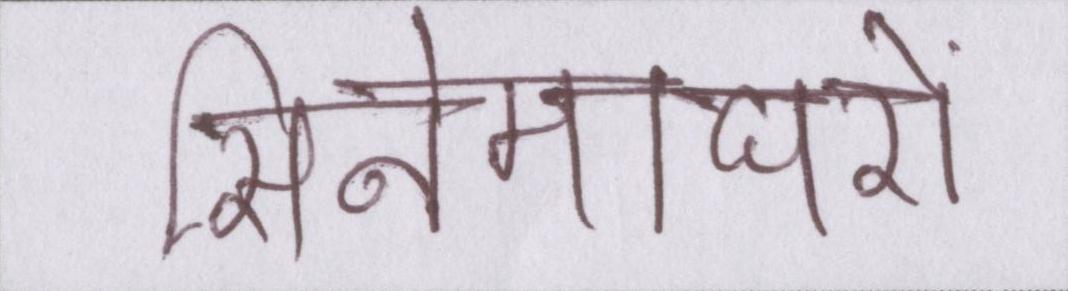 सिनेमाघरों